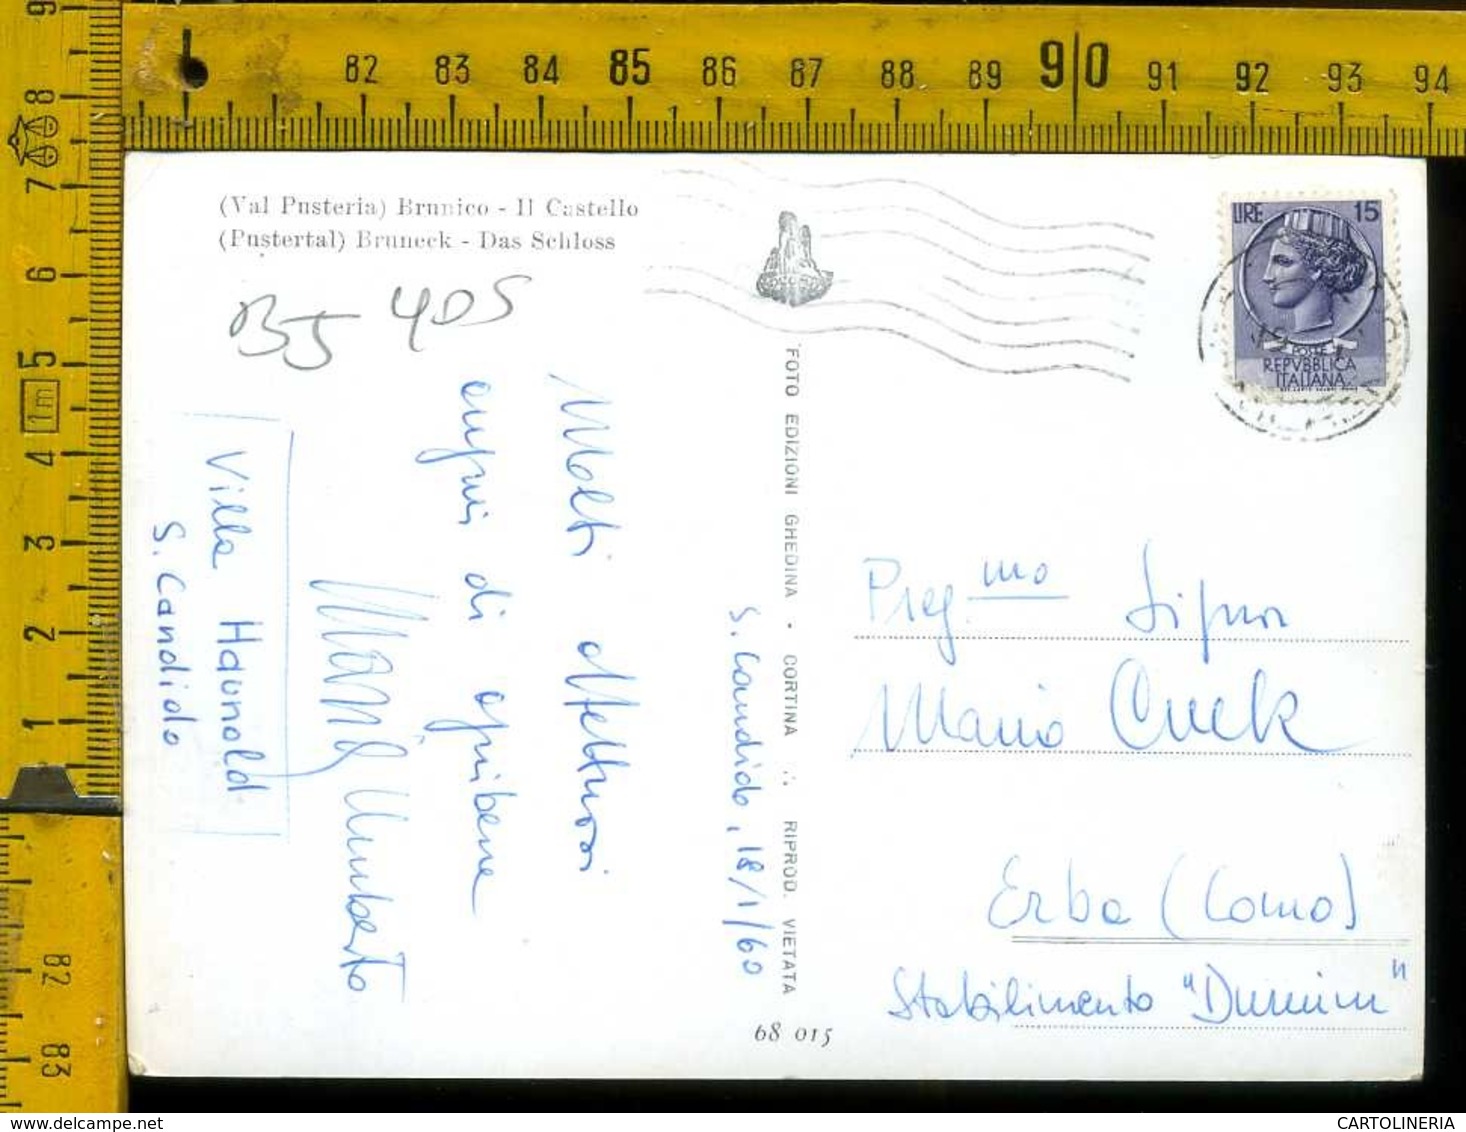 82 83 84 85 86 87 88 89 9|0 91 92 93 94
9
8
7
6
5
1m
4
3
2
1
82
83
(Val Pusteria) Brunico - Il Castello
(Pustertal) Bruneck - Das Schloss
B5 405
LIRE 15
POSTE
REPVBBLICA
ITALIANA
Molti affettuosi
auguri di ogni bene
Umberto
Villa Haunold
S. Candido
S. Candido, 18/1/60
FOTO EDIZIONI GHEDINA · CORTINA ∴ RIPROD. VIETATA
68 015
Preg.mo Signor
Mario
Erba (Como)
Stabilimento
CARTOLINERIA